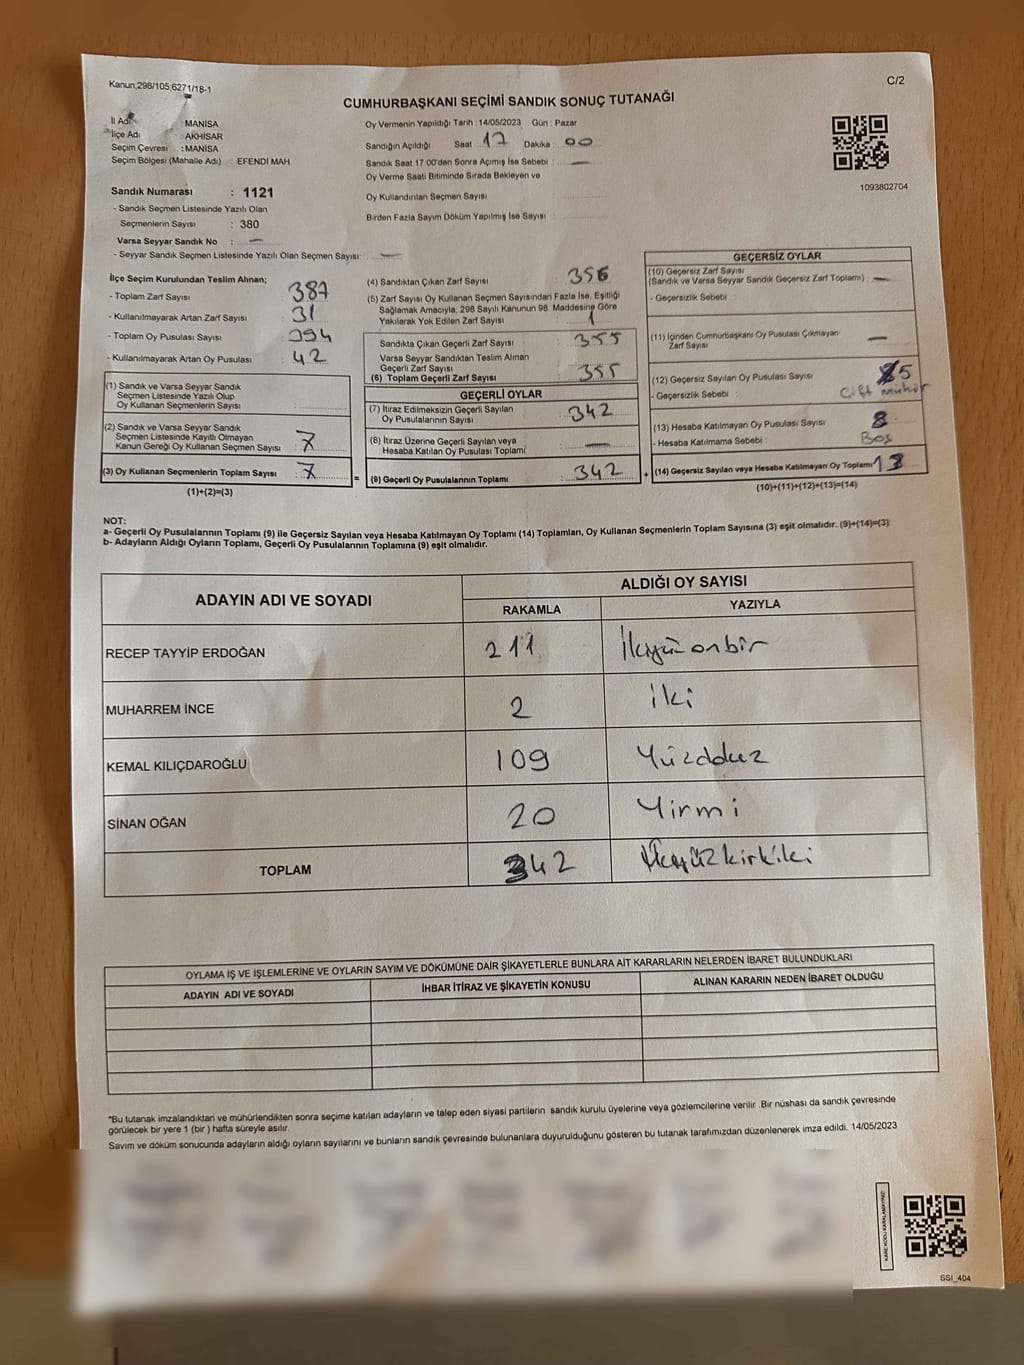 Kanun:298/105,6271/18-1
C/2
CUMHURBAŞKANI SEÇİMİ SANDIK SONUÇ TUTANAĞI
İl Adı : MANİSA
İlçe Adı : AKHİSAR
Seçim Çevresi : MANİSA
Seçim Bölgesi (Mahalle Adı) : EFENDİ MAH
Oy Vermenin Yapıldığı Tarih :14/05/2023 Gün : Pazar
Sandığın Açıldığı Saat 17 Dakika 00
Sandık Saat 17:00'den Sonra Açımış İse Sebebi : —
Oy Verme Saati Bitiminde Sırada Bekleyen ve
Oy Kullandırılan Seçmen Sayısı
Birden Fazla Sayım Döküm Yapılmış İse Sayısı
1093802704
Sandık Numarası : 1121
- Sandık Seçmen Listesinde Yazılı Olan
Seçmenlerin Sayısı : 380
Varsa Seyyar Sandık No : —
- Seyyar Sandık Seçmen Listesinde Yazılı Olan Seçmen Sayısı: —
İlçe Seçim Kurulundan Teslim Alınan;
- Toplam Zarf Sayısı 387
- Kullanılmayarak Artan Zarf Sayısı 31
- Toplam Oy Pusulası Sayısı 394
- Kullanılmayarak Artan Oy Pusulası 42
(1) Sandık ve Varsa Seyyar Sandık
Seçmen Listesinde Yazılı Olup
Oy Kullanan Seçmenlerin Sayısı :
(2) Sandık ve Varsa Seyyar Sandık
Seçmen Listesinde Kayıtlı Olmayan
Kanun Gereği Oy Kullanan Seçmen Sayısı : 7
(3) Oy Kullanan Seçmenlerin Toplam Sayısı : 7
(1)+(2)=(3)
(4) Sandıktan Çıkan Zarf Sayısı 356
(5) Zarf Sayısı Oy Kullanan Seçmen Sayısından Fazla İse, Eşitliği
Sağlamak Amacıyla; 298 Sayılı Kanunun 98. Maddesine Göre
Yakılarak Yok Edilen Zarf Sayısı 1
Sandıkta Çıkan Geçerli Zarf Sayısı : 355
Varsa Seyyar Sandıktan Teslim Alınan
Geçerli Zarf Sayısı
(6) Toplam Geçerli Zarf Sayısı 355
GEÇERLİ OYLAR
(7) İtiraz Edilmeksizin Geçerli Sayılan
Oy Pusulalarının Sayısı : 342
(8) İtiraz Üzerine Geçerli Sayılan veya
Hesaba Katılan Oy Pusulası Toplamı : —
(9) Geçerli Oy Pusulalarının Toplamı : 342
GEÇERSİZ OYLAR
(10) Geçersiz Zarf Sayısı
(Sandık ve Varsa Seyyar Sandık Geçersiz Zarf Toplamı) : —
- Geçersizlik Sebebi :
(11) İçinden Cumhurbaşkanı Oy Pusulası Çıkmayan
Zarf Sayısı : —
(12) Geçersiz Sayılan Oy Pusulası Sayısı : 5
- Geçersizlik Sebebi : Çift mühür
(13) Hesaba Katılmayan Oy Pusulası Sayısı : 8
- Hesaba Katılmama Sebebi : Boş
(14) Geçersiz Sayılan veya Hesaba Katılmayan Oy Toplamı: 13
(10)+(11)+(12)+(13)=(14)
NOT:
a- Geçerli Oy Pusulalarının Toplamı (9) ile Geçersiz Sayılan veya Hesaba Katılmayan Oy Toplamı (14) Toplamları, Oy Kullanan Seçmenlerin Toplam Sayısına (3) eşit olmalıdır. (9)+(14)=(3)
b- Adayların Aldığı Oyların Toplamı, Geçerli Oy Pusulalarının Toplamına (9) eşit olmalıdır.
ADAYIN ADI VE SOYADI ALDIĞI OY SAYISI
RAKAMLA YAZIYLA
RECEP TAYYİP ERDOĞAN 211 İkiyüzonbir
MUHARREM İNCE 2 iki
KEMAL KILIÇDAROĞLU 109 Yüzdokuz
SİNAN OĞAN 20 Yirmi
TOPLAM 342 Üçyüzkırkiki
OYLAMA İŞ VE İŞLEMLERİNE VE OYLARIN SAYIM VE DÖKÜMÜNE DAİR ŞİKAYETLERLE BUNLARA AİT KARARLARIN NELERDEN İBARET BULUNDUKLARI
ADAYIN ADI VE SOYADI İHBAR İTİRAZ VE ŞİKAYETİN KONUSU ALINAN KARARIN NEDEN İBARET OLDUĞU
*Bu tutanak imzalandıktan ve mühürlendikten sonra seçime katılan adayların ve talep eden siyasi partilerin sandık kurulu üyelerine veya gözlemcilerine verilir .Bir nüshası da sandık çevresinde
görülecek bir yere 1 (bir ) hafta süreyle asılır.
Sayım ve döküm sonucunda adayların aldığı oyların sayılarını ve bunların sandık çevresinde bulunanlara duyurulduğunu gösteren bu tutanak tarafımızdan düzenlenerek imza edildi. 14/05/2023
KARE KODU KARALAMAYINIZ!
SSI_404